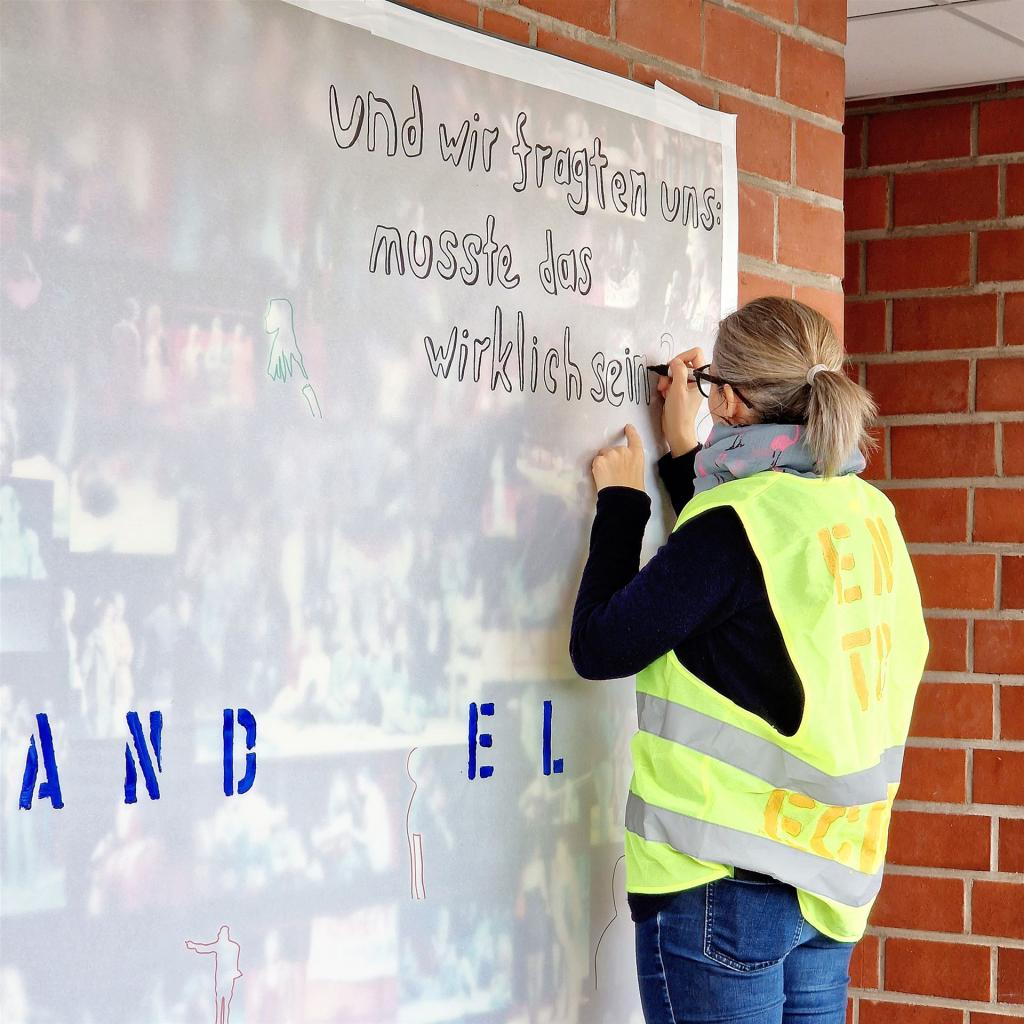 und wir fragten uns:
musste das
wirklich sein?
AND EL
EN
TD
ECK